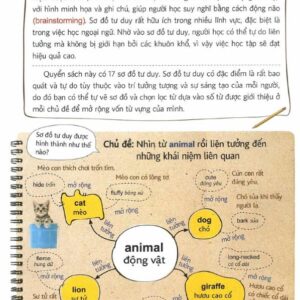 với hình minh họa và ghi chú, giúp người học suy nghĩ bằng cách động não
(brainstorming). Sơ đồ tư duy rất hữu ích trong nhiều lĩnh vực, đặc biệt là
trong việc học ngoại ngữ. Nhờ vào sơ đồ tư duy, người học có thể tự do liên
tưởng mà không bị giới hạn bởi các khuôn khổ, vì vậy việc học tập sẽ đạt
hiệu quả cao.
Quyển sách này có 17 sơ đồ tư duy. Sơ đồ tư duy có đặc điểm là rất bao
quát và tự do tùy thuộc vào trí tưởng tượng và sự sáng tạo của mỗi người,
do đó bạn có thể tự vẽ sơ đồ và chọn lọc từ dựa vào số từ được giới thiệu ở
mỗi chủ đề để mở rộng vốn từ vựng của mình.
Sơ đồ tư duy được
hình thành như thế
nào?
Chủ đề: Nhìn từ animal rồi liên tưởng đến
những khái niệm liên quan
Mèo con thích chơi trốn tìm.
hide trốn
mở rộng
Mèo con có lông tơ.
fluffy bông xù
mở rộng
cat
mèo
liên tưởng
Cún con rất
đáng yêu.
cute
đáng yêu
mở rộng
Chó sủa khi thấy
người lạ.
bark sủa
mở rộng
dog
chó
liên tưởng
animal
động vật
fierce
hung dữ
mở rộng
lion
sư tử
liên tưởng
long-necked
có cổ dài
mở rộng
giraffe
hươu cao cổ
liên tưởng
Hươu cao cổ
có chiếc cổ